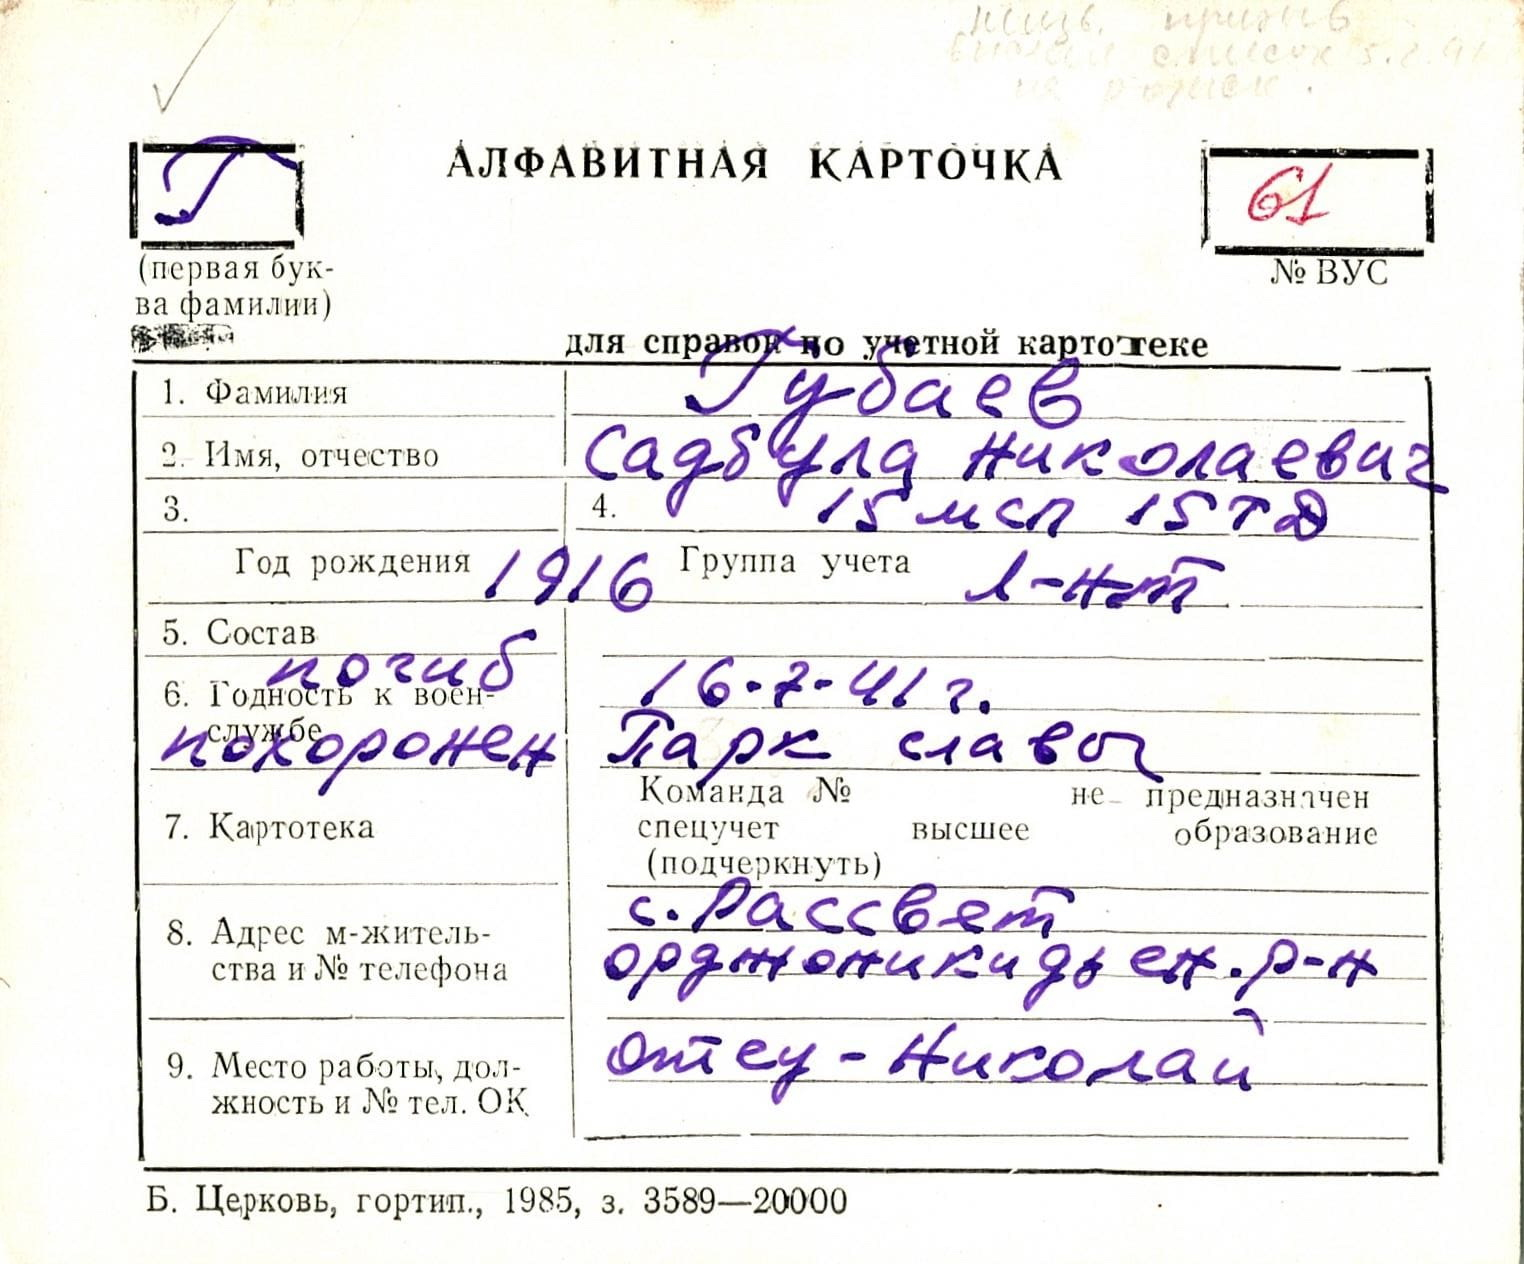 Г
АЛФАВИТНАЯ КАРТОЧКА
61
(первая бук-
ва фамилии)
№ ВУС
для справок по учетной картотеке
1. Фамилия Губаев
2. Имя, отчество Садбула Николаевич
3. 4. 15 мсп 15 тд
Год рождения 1916 Группа учета л-нт
5. Состав
погиб 16.7.41 г.
6. Годность к воен-
службе
похоронен Парк славы
Команда № не предназначен
7. Картотека спецучет высшее образование
(подчеркнуть)
с. Рассвет
8. Адрес м-житель-
ства и № телефона орджоникидзен. р-н
9. Место работы, дол- Отец - Николай
жность и № тел. ОК
Б. Церковь, гортип., 1985, з. 3589—20000